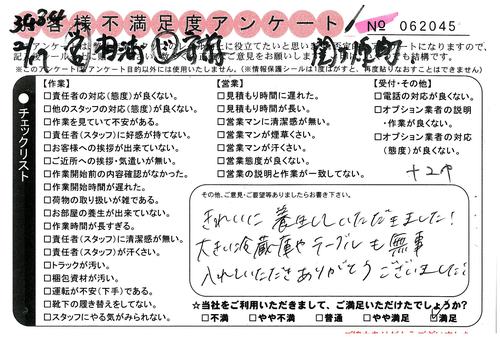 お客様不満足度アンケート
№ 062045
※このアンケートはアンケート目的以外には使用いたしません。(※情報保護シールは1度はがすと、再度貼りなおすことはできません)
チェックリスト
【作業】
□責任者の対応(態度)が良くない。
□他のスタッフの対応(態度)が良くない。
□作業を見ていて不安がある。
□責任者(スタッフ)に好感が持てない。
□お客様への挨拶が出来ていない。
□ご近所への挨拶・気遣いが無い。
□作業開始前の内容確認がなかった。
□作業開始時間が遅れた。
□荷物の取り扱いが雑である。
□お部屋の養生が出来ていない。
□作業時間が長すぎる。
□責任者(スタッフ)に清潔感が無い。
□責任者(スタッフ)が汗くさい。
□トラックが汚い。
□梱包資材が汚い。
□運転が不安(下手)である。
□靴下の履き替えをしてない。
□スタッフにやる気がみられない。
【営業】
□見積もり時間に遅れた。
□見積もり時間が長い。
□営業マンに清潔感が無い。
□営業マンが煙草くさい。
□営業マンが汗くさい。
□営業態度が良くない。
□営業の説明と作業が一致してない。
【受付・その他】
□電話の対応が良くない。
□オプション業者の説明
・作業が良くない。
□オプション業者の対応
(態度)が良くない。
その他、ご意見・ご要望等ありましたらお書き下さい。
きれいに養生していただきました!
大きい冷蔵庫やテーブルも無事
入れていただきありがとうございました!
☆当社をご利用いただきまして、ご満足いただけたでしょうか?
□不満 □やや不満 □普通 □やや満足 □満足